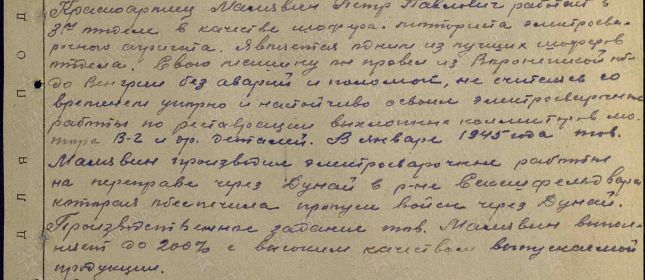 Красноармеец Малявин Петр Павлович работает в
3м отделе в качестве шофера-моториста электросва-
рочного агрегата. Является одним из лучших шоферов
отдела. Свою машину он провел из Воронежской обл.
до Венгрии без аварий и поломок, не считаясь со
временем упорно и настойчиво освоил электросварочные
работы по реставрации выхлопных коллекторов мо-
тора В-2 и др. деталей. В январе 1945 года тов.
Малявин производил электросварочные работы
на переправе через Дунай в р-не Сексифельдвара
которая обеспечила пропуск войск через Дунай.
Производственное задание тов. Малявин выпол-
няет до 200% с высоким качеством выпускаемой
продукции.
ДЛЯ ПОД